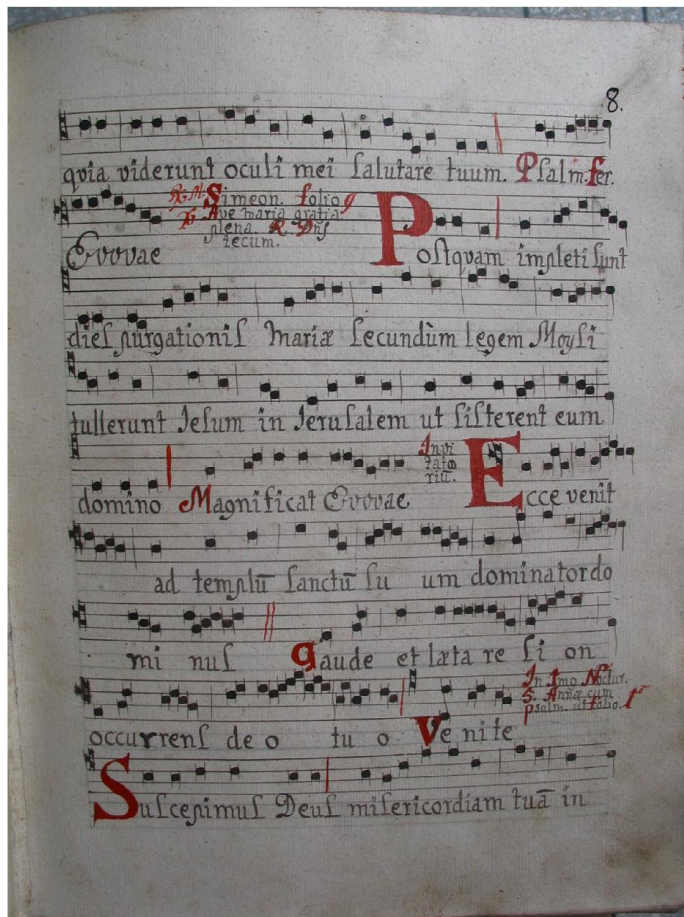 8.
quia viderunt oculi mei salutare tuum. Psalm. fer.
Simeon. folio 9
Ave maria gratia
plena. R. Dns
tecum.
Evovae
Postquam impleti sunt
dies purgationis mariæ secundùm legem Moysi
tullerunt Jesum in Jerusalem ut sisterent eum
domino Magnificat Evovae
Invi
tato
riũ.
Ecce venit
ad templũ sanctũ su um dominator do
mi nus gaude et læta re si on
occurrens de o tu o Ve ni te
In Imo Noctur.
S. Annæ cum
psalm. ut folio. 1
Suscepimus Deus misericordiam tuã in